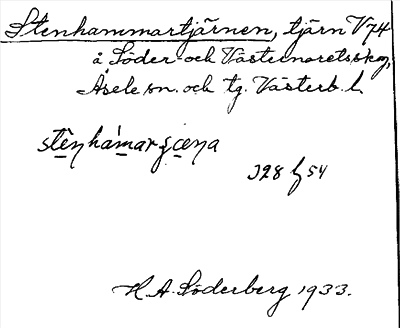 Stenhammartjärnen, tjärn V 74
å Söder- och Västernoretsskog,
Åsele sn. och tg. Västerb. l.
J 28 h 54
H. A. Söderberg 1933.